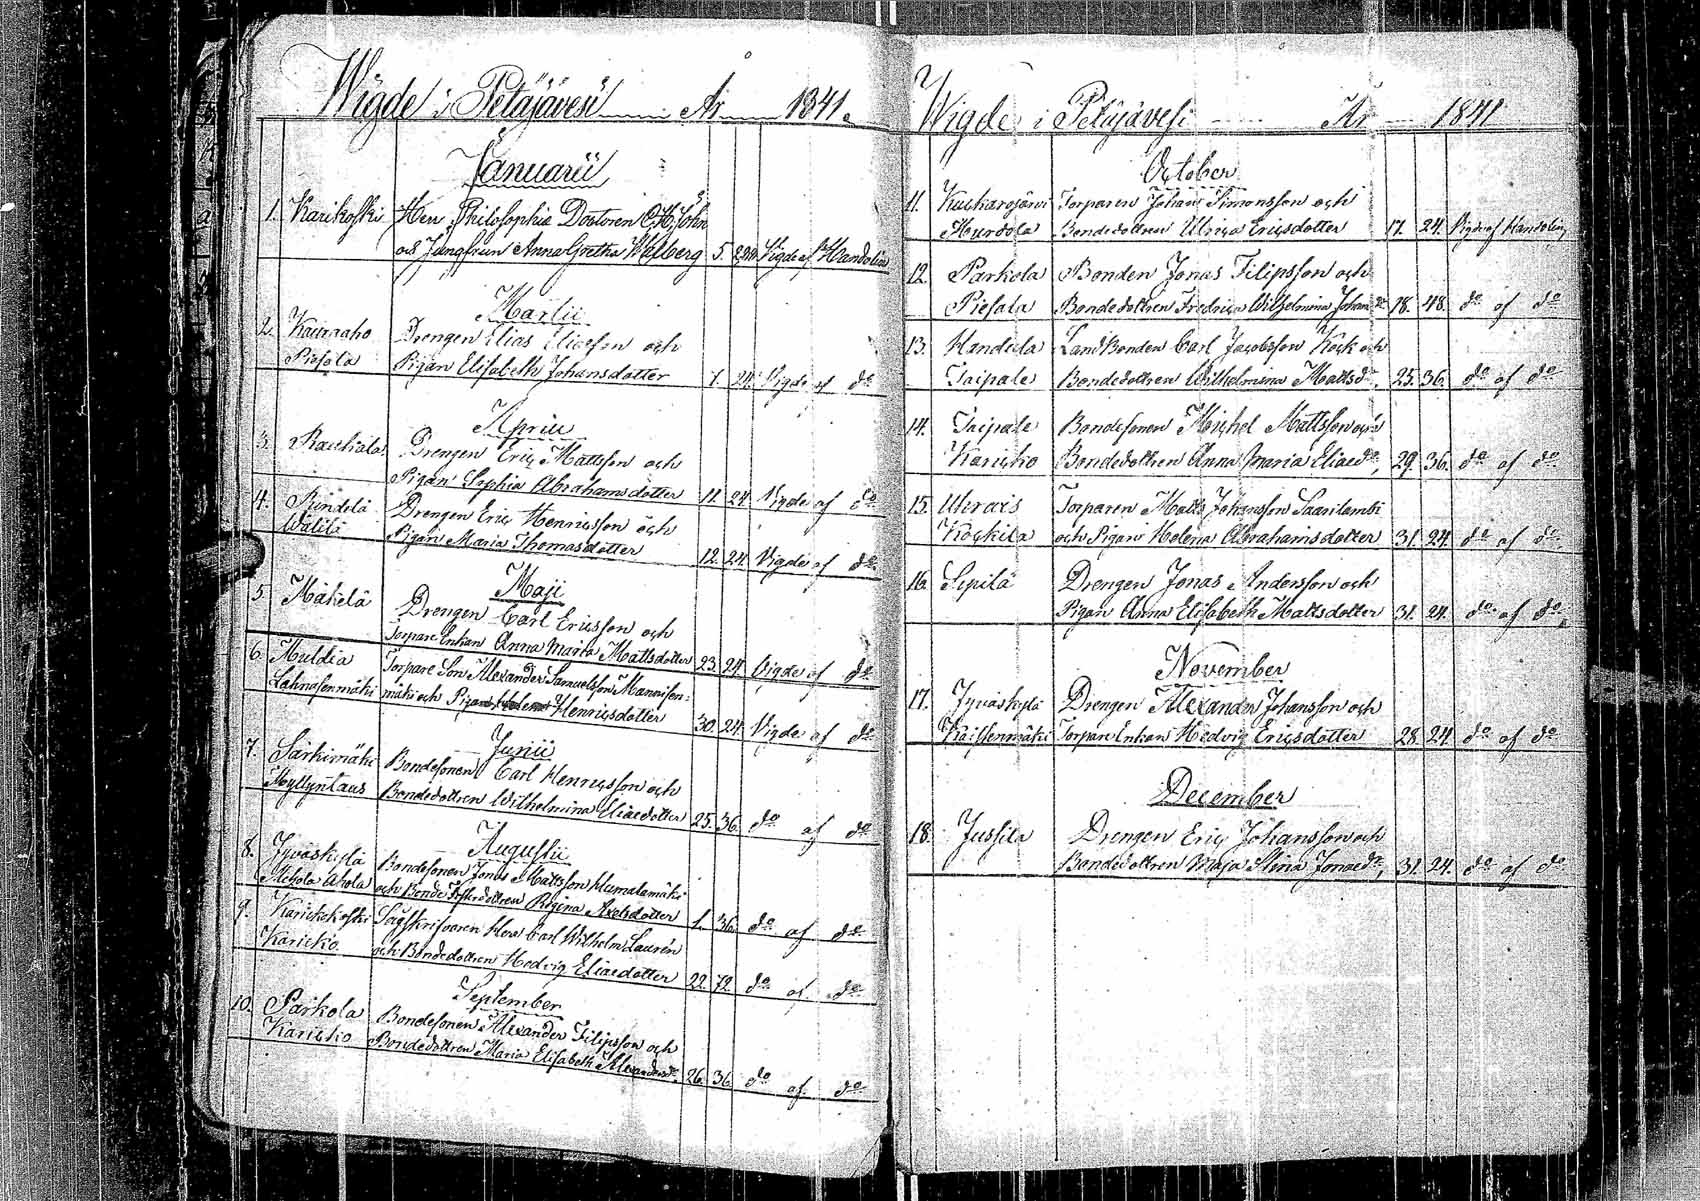 Wigde i Petäjävesi År 1841.
Januarii
1. Karikoski Herr Philosophiæ Doctoren
och Jungfrun Anna Gretha Wilberg 5. Vigde af Handolin
Martii
2. Kauraaho Drengen Elias Eliasson och
Piesala Pigan Elisabeth Johansdotter 7. 24. Vigde af do
Aprill
3. Raukala Drengen Eriç Mattsson och
Pigan Sophia Abrahamsdotter 11. 24. Vigde af do
4. Rindelä Drengen Eriç Henriçsson och
Pigan Maria Thomasdotter 12. 24. Vigde af do
Maji
5. Mäkelä Drengen Carl Eriçsson och
Torpare Enkan Anna Maria Mattsdotter 23. 24. Vigde af do
6. Muldia Torpare Son Alexander Samuelsson Mannisen-
Lahnasenmäki mäki och Pigan Henriçsdotter 30. 24. Vigde af do
Junii
7. Särkimäki Bondesonen Carl Henriçsson och
Myllyntaus Bondedottren Wilhelmina Eliaedotter 25. 36. do af do
Augustii
8. Jyväskylä Bondesonen Jonas Mattsson Humalamäki
Ahola och Bonde dottren Regina Axelsdotter 1. 36. do af do
9. Karickokoski Herr Carl Wilhelm Laurén
Karicko och Bondedottren Hedvig Eliaedotter 22. 72. do af do
September
10. Parkola Bondesonen Alexander Filipsson och
Karicko Bondedottren Maria Elisabeth Alexandersdr. 26. 36. do af do
Wigde i Petäjävesi År 1841
October
11. Kuckarojärvi Torparen Johan Simonsson och
Hurdola Bondedottren Ulriça Eriçsdotter 17. 24. Vigde af Handolin
12. Parkola Bonden Jonas Filipsson och
Piesala Bondedottren Fredriça Wilhelmina Johansdr 18. 48. do af do
13. Landbonden Carl Jacobsson Köçk och
Taipale Bondedottren Wilhelmina Mattsdr, 25. 36. do af do
14. Taipale Bondesonen Michel Mattsson och
Kariçko Bondedottren Anna Maria Eliaedr, 29. 36. do af do
15. Torparen Matts Johansson Saarilambi
Köçkilä och Pigan Helena Abrahamsdotter 31. 24. do af do
16. Sepilä Drengen Jonas Andersson och
Pigan Anna Elisabeth Mattsdotter 31. 24. do af do
November
17. Jyväskylä Drengen Alexander Johansson och
Kaissenmäki Torpare Enkan Hedvig Eriçsdotter 28. 24. do af do
December
18. Jussila Drengen Eriç Johansson och
Bondedottren Maja Stina Jonaedr, 31. 24. do af do